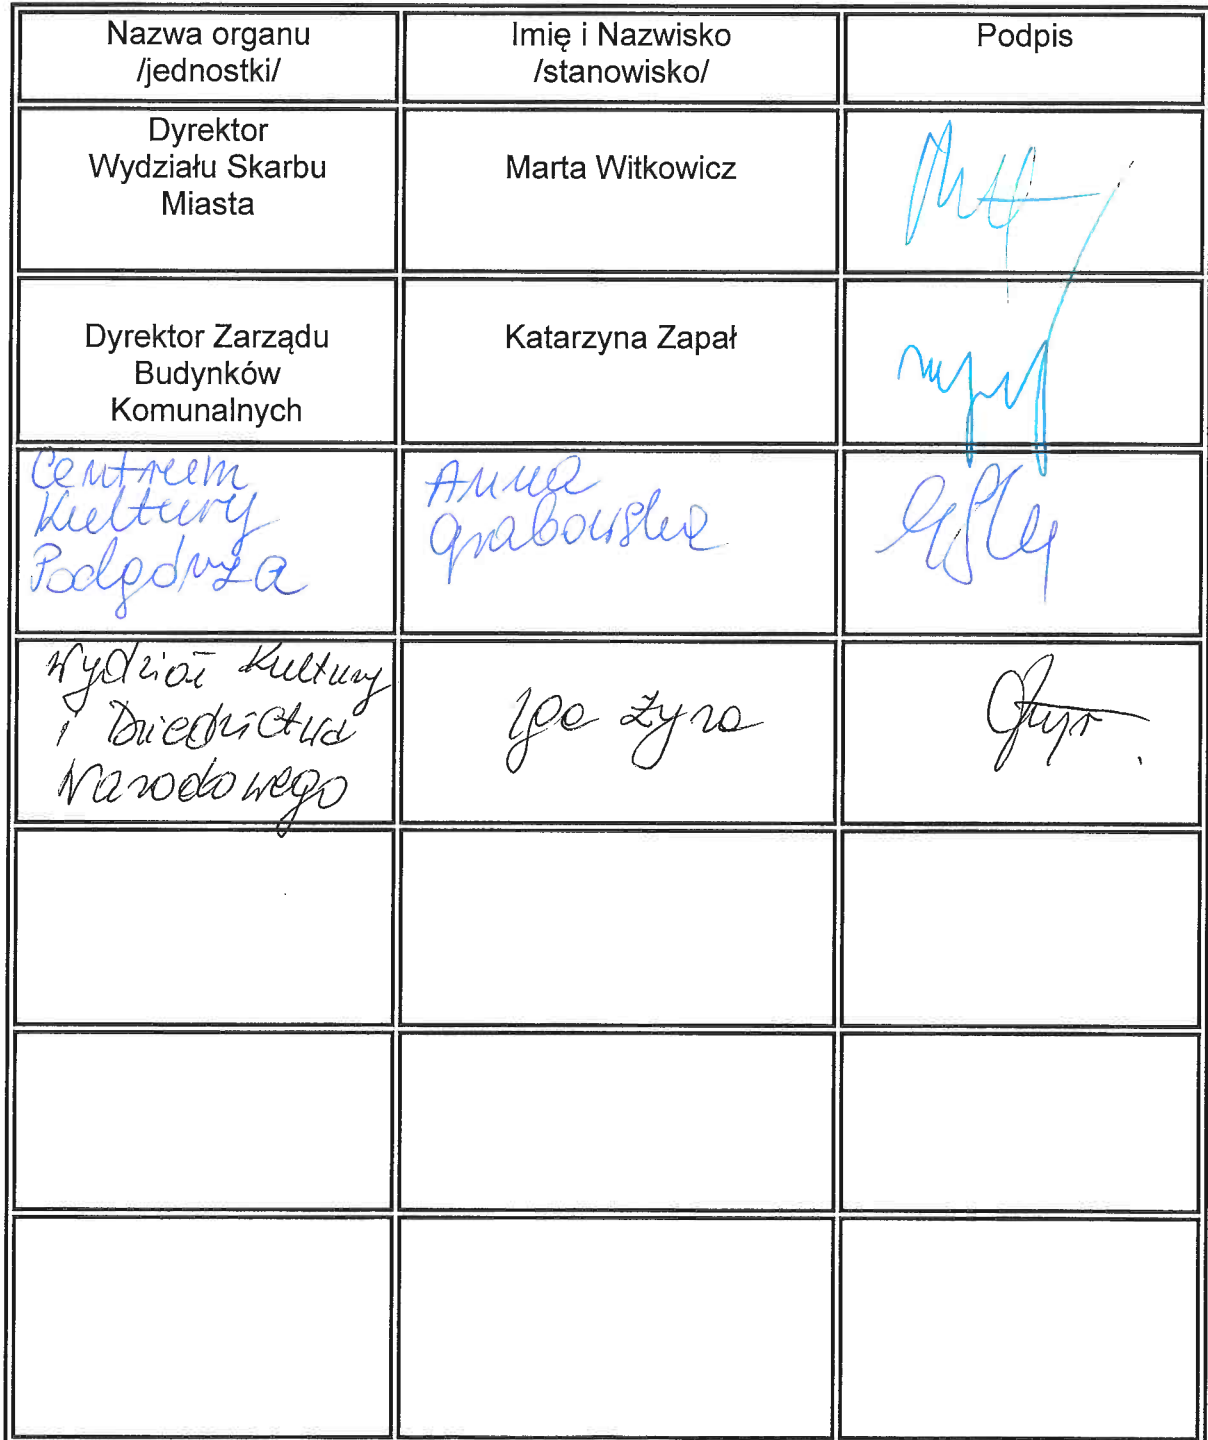 Nazwa organu
/jednostki/
Imię i Nazwisko
/stanowisko/
Podpis
Dyrektor
Wydziału Skarbu
Miasta
Marta Witkowicz
Dyrektor Zarządu
Budynków
Komunalnych
Katarzyna Zapał
Centrum
Kultury
Podgórza
Anna
Grabowska
Wydział Kultury
i Dziedzictwa
Narodowego
Iga Żyra